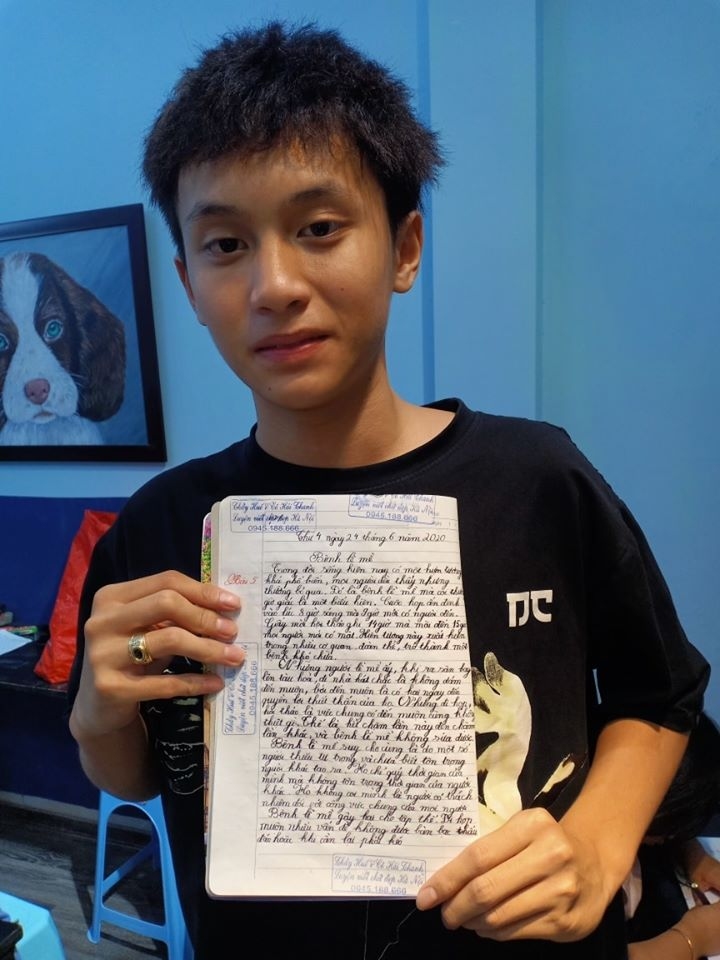 Thầy Huê v Cô Hải Thanh
Luyện viết chữ đẹp Hà Nội
0945.188.666
v Cô Hải Thanh
Luyện viết chữ đẹp Hà Nội
0945.188.666
Thứ 4 ngày 24 tháng 6 năm 2020
Bài 5
Bệnh lề mề
Trong đời sống hiện nay có một hiện tượng
khá phổ biến, mọi người đều thấy nhưng
thường bỏ qua. Đó là bệnh lề mề mà coi thường
giờ giấc là một biểu hiện. Cuộc họp ấn định
vào lúc 8 giờ sáng mà 9 giờ mới có người đến.
Giấy mời hội thảo ghi 14 giờ mà mãi đến 15 giờ
mọi người mới có mặt. Hiện tượng này xuất hiện
trong nhiều cơ quan, đoàn thể, trở thành một
bệnh khó chữa.
Những người lề mề ấy, khi ra sân bay,
lên tàu hỏa, đi nhà hát chắc là không dám
đến muộn, bởi đến muộn là có hại ngay đến
quyền lợi thiết thân của họ. Nhưng đi họp,
hội thảo là việc chung có đến muộn cũng không
thiệt gì. Thế là hết chậm lần này đến chậm
lần khác, và bệnh lề mề không sửa được.
Bệnh lề mề suy cho cùng là do một số
người thiếu tự trọng và chưa biết tôn trọng
người khác tạo ra. Họ chỉ quý thời gian của
mình mà không tôn trọng thời gian của người
khác. Họ không coi mình là người có trách
nhiệm đối với công việc chung của mọi người.
Bệnh lề mề gây hại cho tập thể. Đi họp
muộn nhiều vấn đề không được bàn bạc thấu
đáo hoặc khi cần lại phải kéo
Thầy Huê v Cô Hải Thanh
Luyện viết chữ đẹp Hà Nội
0945.188.666
Thầy Huê v Cô Hải Thanh
Luyện viết chữ đẹp Hà Nội
0945.188.666
DC